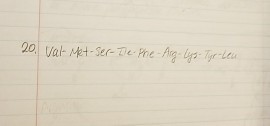 20. Val-Met-Ser-Ile-Phe-Arg-Cys-Tyr-Leu